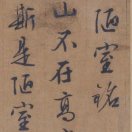 陋室銘
山不在高
斯是陋室